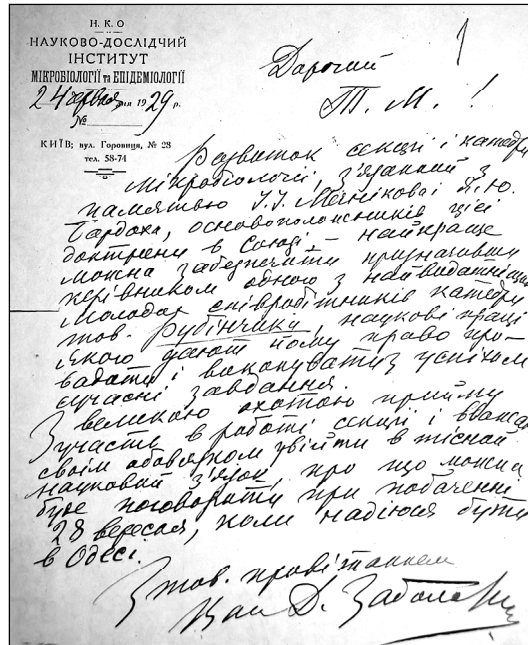 Н. К. О
НАУКОВО-ДОСЛІДЧИЙ
ІНСТИТУТ
МІКРОБІОЛОГІЇ та ЕПІДЕМІОЛОГІЇ
24 червня 1929 р.
№
КИЇВ; вул. Горовица, № 28
тел. 58-74
Дорогий
Т. М. !
Розвиток секції і катедри
мікробіології, з'язаний з
памяттю І. І. Мечнікова і Я. Ю.
Бардаха, основоположників цієї
доктрени в Союзі – найкраще
можна забезпечити призначивши
керівником одного з найвидатніших
молодих співробітників катедри
тов. Рубінчика, наукові праці
якого дают йому право про-
вадити і виконувати з успіхом
сучасні завдання.
З великою охотою прийму
участь в роботі секції і вважаю
своїм обовязком увійти в тісний
науковий з'язок, про що можна
буде поговорити при побаченні
28 вересня, коли надіюся бути
в Одесі.
З тов. привітанням
Ваш Д. Заболотний